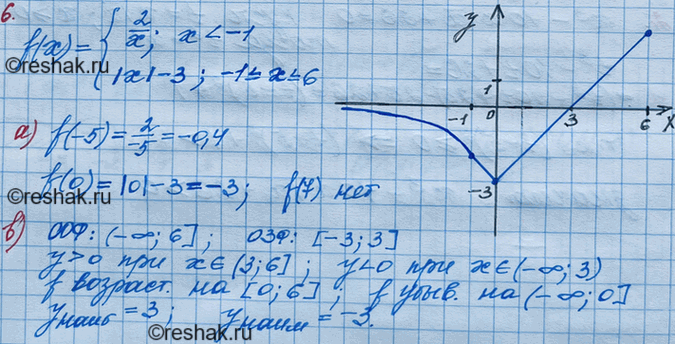 6.
f(x) = { 2/x; x < -1
|x| - 3; -1 ≤ x ≤ 6
©reshak.ru
а) f(-5) = 2/-5 = -0,4
f(0) = |0| - 3 = -3; f(7) нет
©reshak.ru
в) ООФ: (-∞; 6]; ОЗФ: [-3; 3]
y > 0 при x ∈ (3; 6]; y < 0 при x ∈ (-∞; 3)
f возраст. на [0; 6]; f убыв. на (-∞; 0]
y наиб = 3; y наим = -3.
©reshak.ru
y
1
-1 0 3 6 x
-3